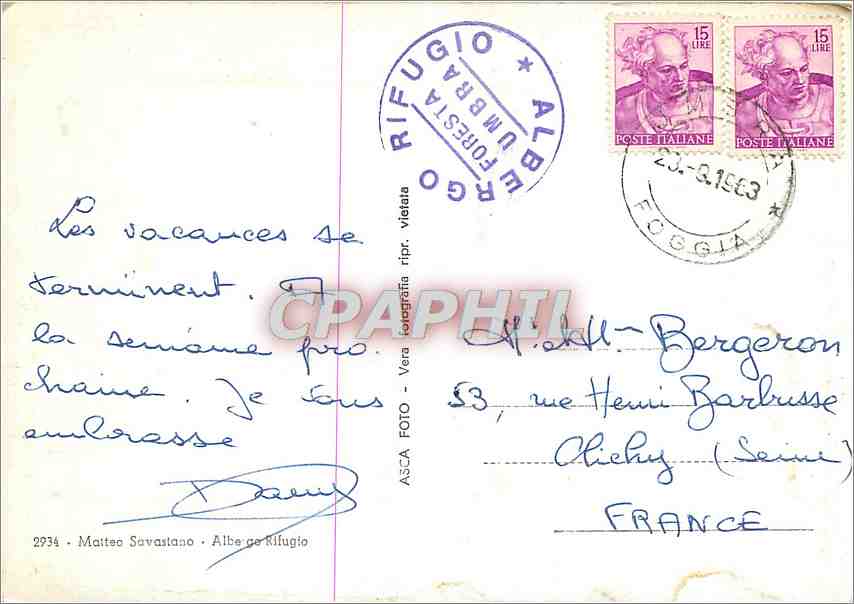 Les vacances se
terminent. A
la semaine pro
chaine. Je vous
embrasse
2934 - Matteo Savastano - Albergo Rifugio
ASCA FOTO - Vera fotografia ripr. vietata
ALBERGO RIFUGIO *
FORESTA
UMBRA
15
LIRE
POSTE ITALIANE
15
LIRE
POSTE ITALIANE
1963
FOGGIA *
CPAPHIL
M. et Mme Bergeron
53, rue Henri Barbusse
Clichy (Seine)
FRANCE